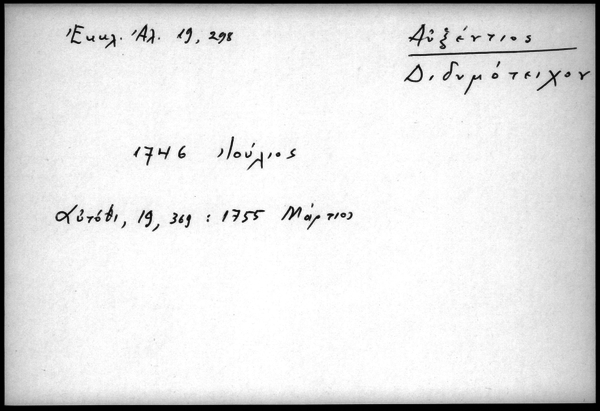 Ἐκκλ. Ἀλ. 19, 298
Αὐξέντιος
Διδυμότειχον
1746 Ἰούλιος
Αὐτόθι, 19, 369 : 1755 Μάρτιος